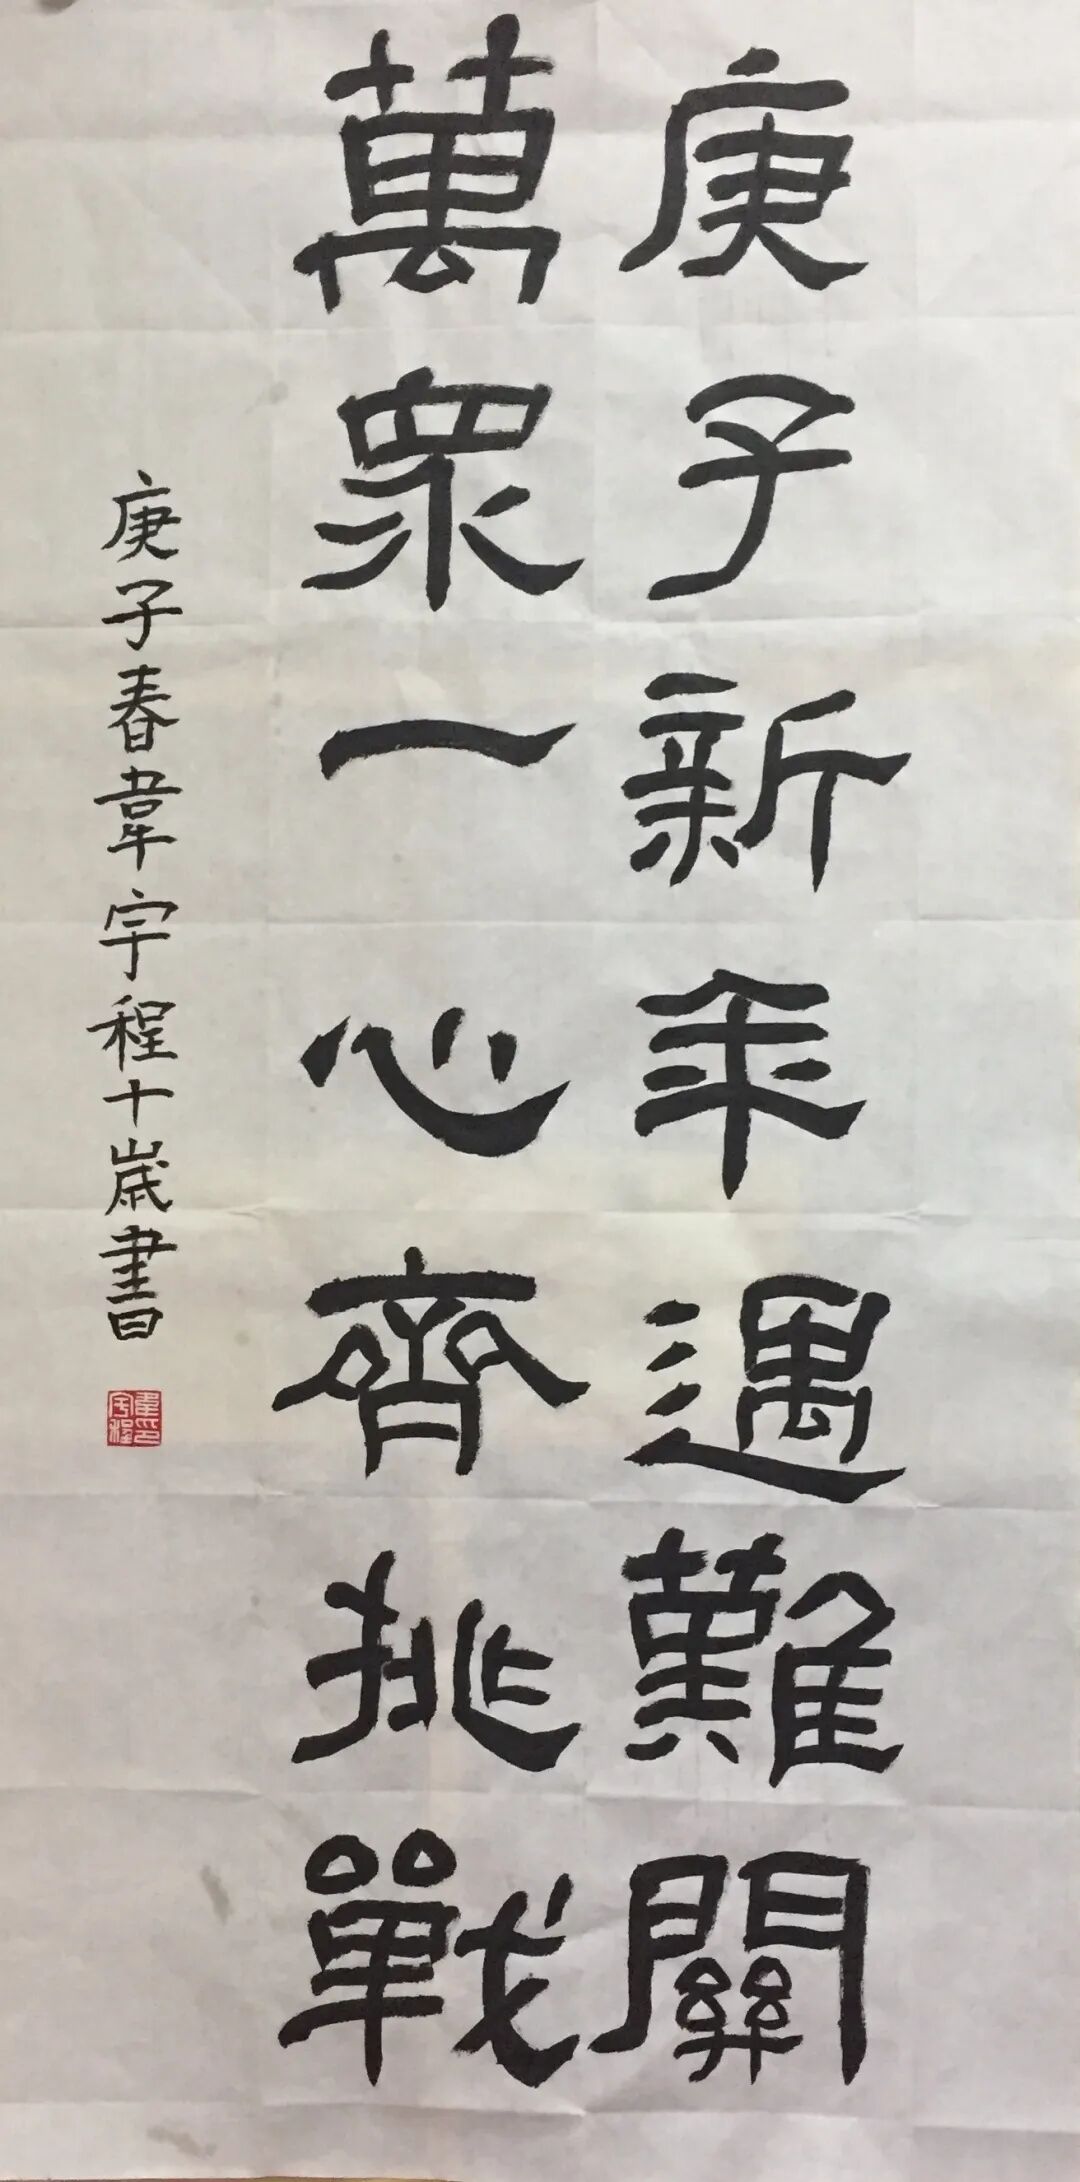 庚子新年遇難關
萬眾一心齊挑戰
庚子春韋宇程十歲書
韋宇程印